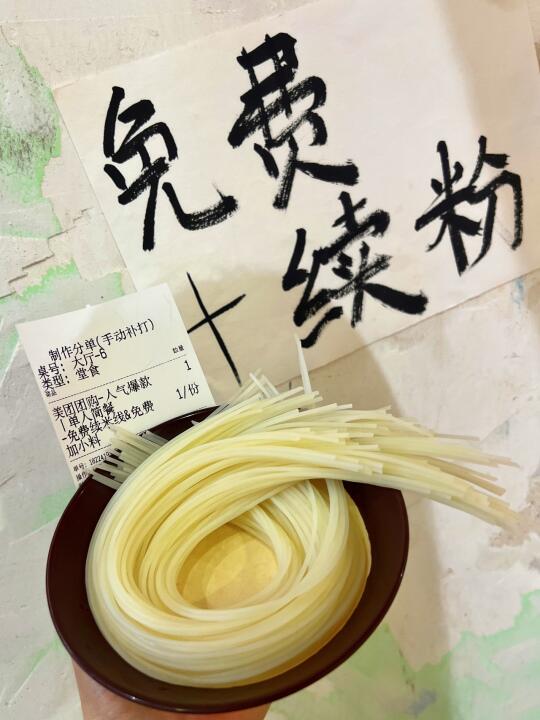 免费
+续粉
制作分单(手动补打)
桌号: 大厅-6
类型: 堂食
菜品 数量
美团团购-人气爆款 1
|单人简餐 1/份
-免费续米线&免费
加小料